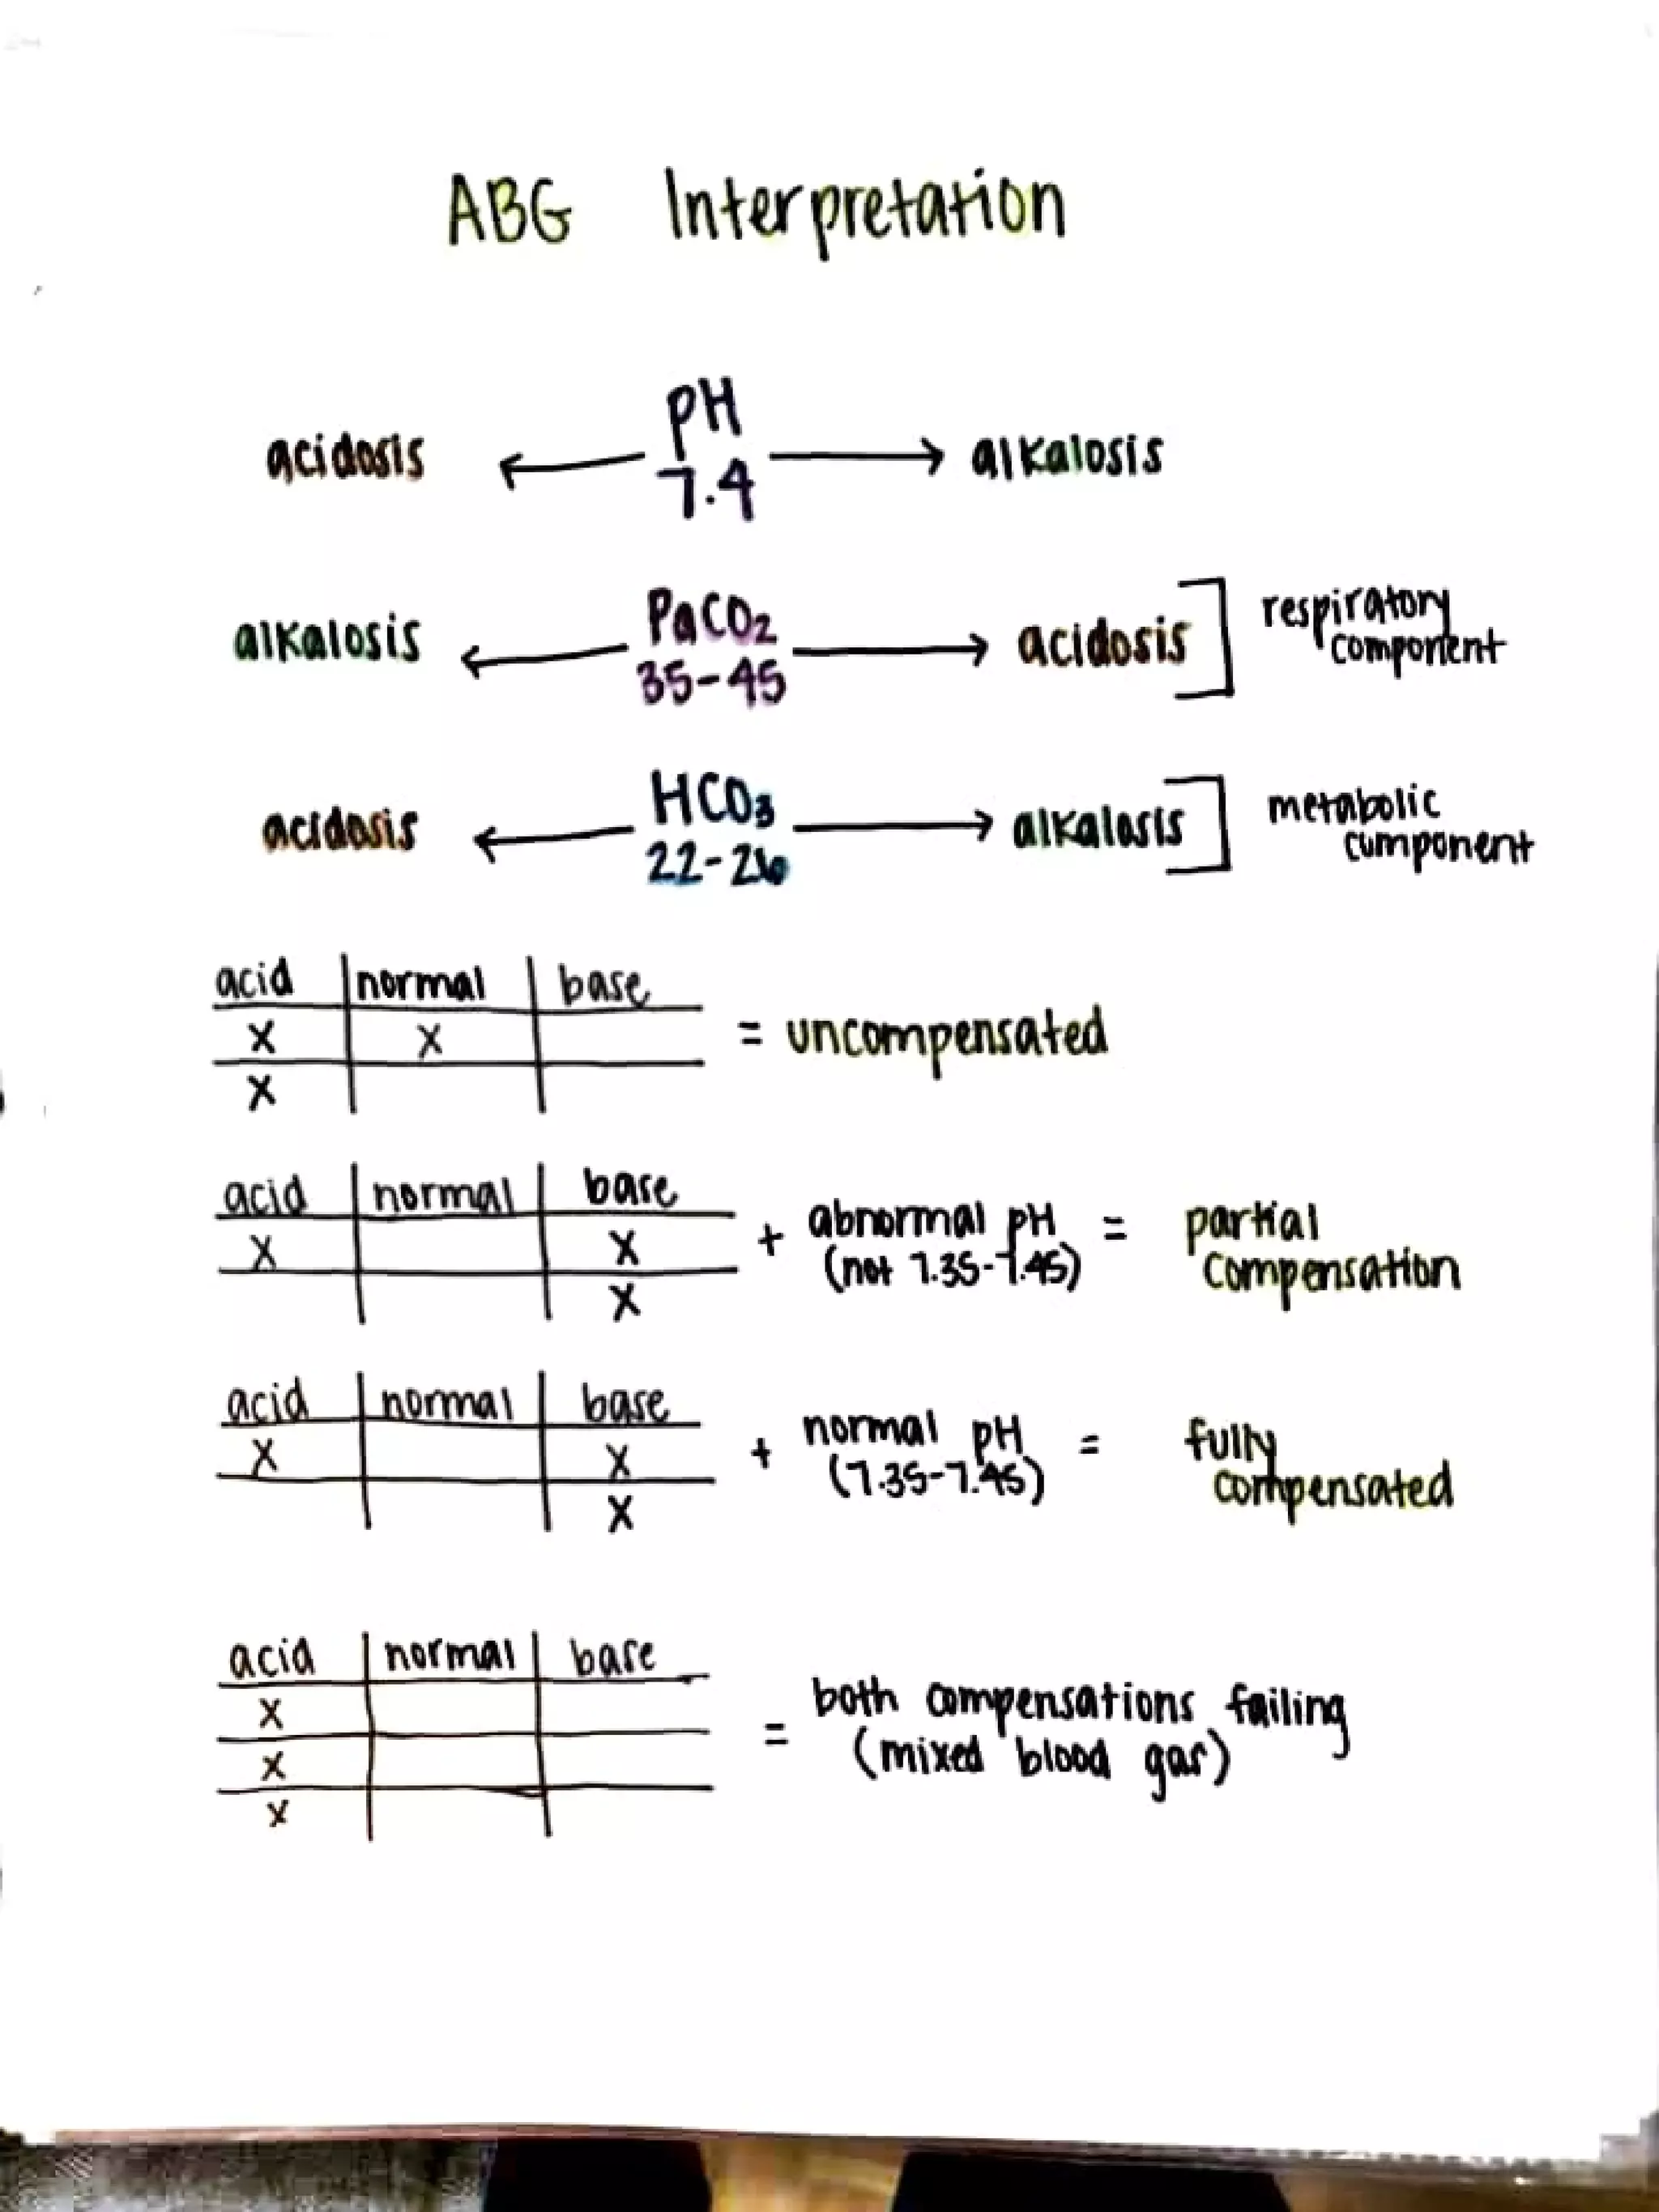 ABG Interpretation
acidosis ← pH 7.4 → alkalosis
alkalosis ← PaCO2 35-45 → acidosis ] respiratory component
acidosis ← HCO3 22-26 → alkalosis ] metabolic component
acid | normal | base
X | X |
X | |
= uncompensated
acid | normal | base
X | | X
| | X
+ abnormal pH (not 7.35-7.45) = partial compensation
acid | normal | base
X | | X
| | X
+ normal pH (7.35-7.45) = fully compensated
acid | normal | base
X | |
X | |
X | |
= both compensations failing (mixed blood gas)